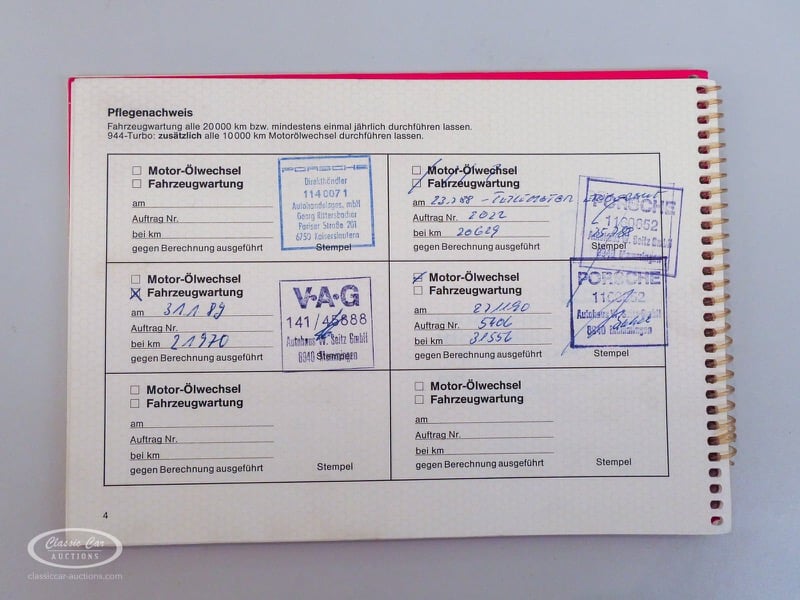 Pflegenachweis
Fahrzeugwartung alle 20 000 km bzw. mindestens einmal jährlich durchführen lassen.
944-Turbo: zusätzlich alle 10 000 km Motorölwechsel durchführen lassen.
Motor-Ölwechsel
Fahrzeugwartung
am
Auftrag Nr.
bei km
gegen Berechnung ausgeführt
Stempel
PORSCHE
Direkthändler
1140071
Autohandelsges. mbH
Georg Rittersbacher
Pariser Straße 201
6750 Kaiserslautern
Motor-Ölwechsel
Fahrzeugwartung
am
Auftrag Nr. 2022
bei km 20629
gegen Berechnung ausgeführt
Stempel
PORSCHE
Autohaus W. Seitz GmbH
8940 Memmingen
Motor-Ölwechsel
Fahrzeugwartung
am 31 1 89
Auftrag Nr.
bei km 21970
gegen Berechnung ausgeführt
Stempel
V·A·G
Autohaus W. Seitz GmbH
8940 Memmingen
Motor-Ölwechsel
Fahrzeugwartung
am
Auftrag Nr.
bei km 31556
gegen Berechnung ausgeführt
Stempel
PORSCHE
Autohaus W.
8940 Memmingen
Motor-Ölwechsel
Fahrzeugwartung
am
Auftrag Nr.
bei km
gegen Berechnung ausgeführt
Stempel
Motor-Ölwechsel
Fahrzeugwartung
am
Auftrag Nr.
bei km
gegen Berechnung ausgeführt
Stempel
4
Classic Car
AUCTIONS
classiccar-auctions.com